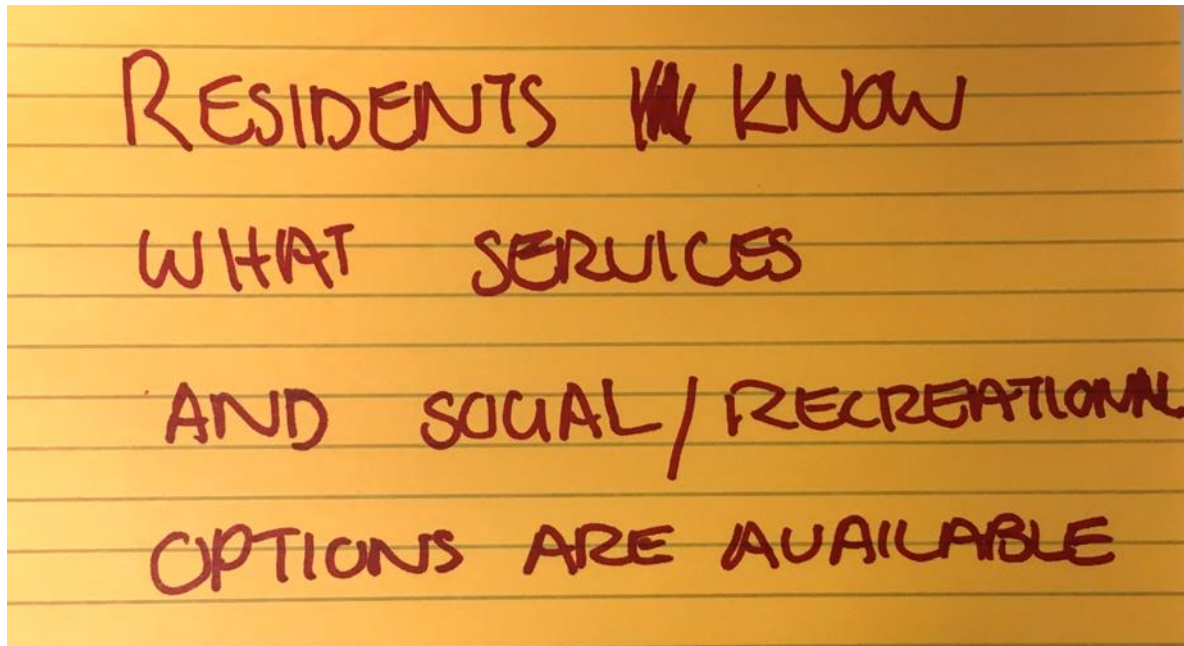 RESIDENTS KNOW
WHAT SERVICES
AND SOCIAL/RECREATIONAL
OPTIONS ARE AVAILABLE